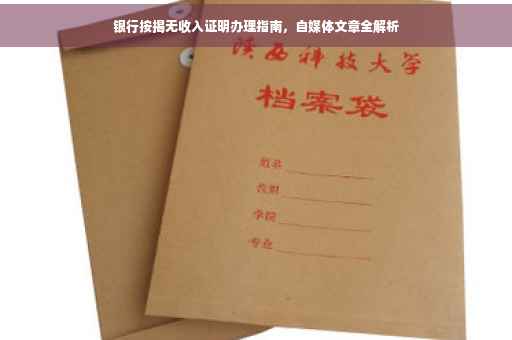 银行按揭无收入证明办理指南，自媒体文章全解析
陕西科技大学
档案袋
姓名
学院
专业